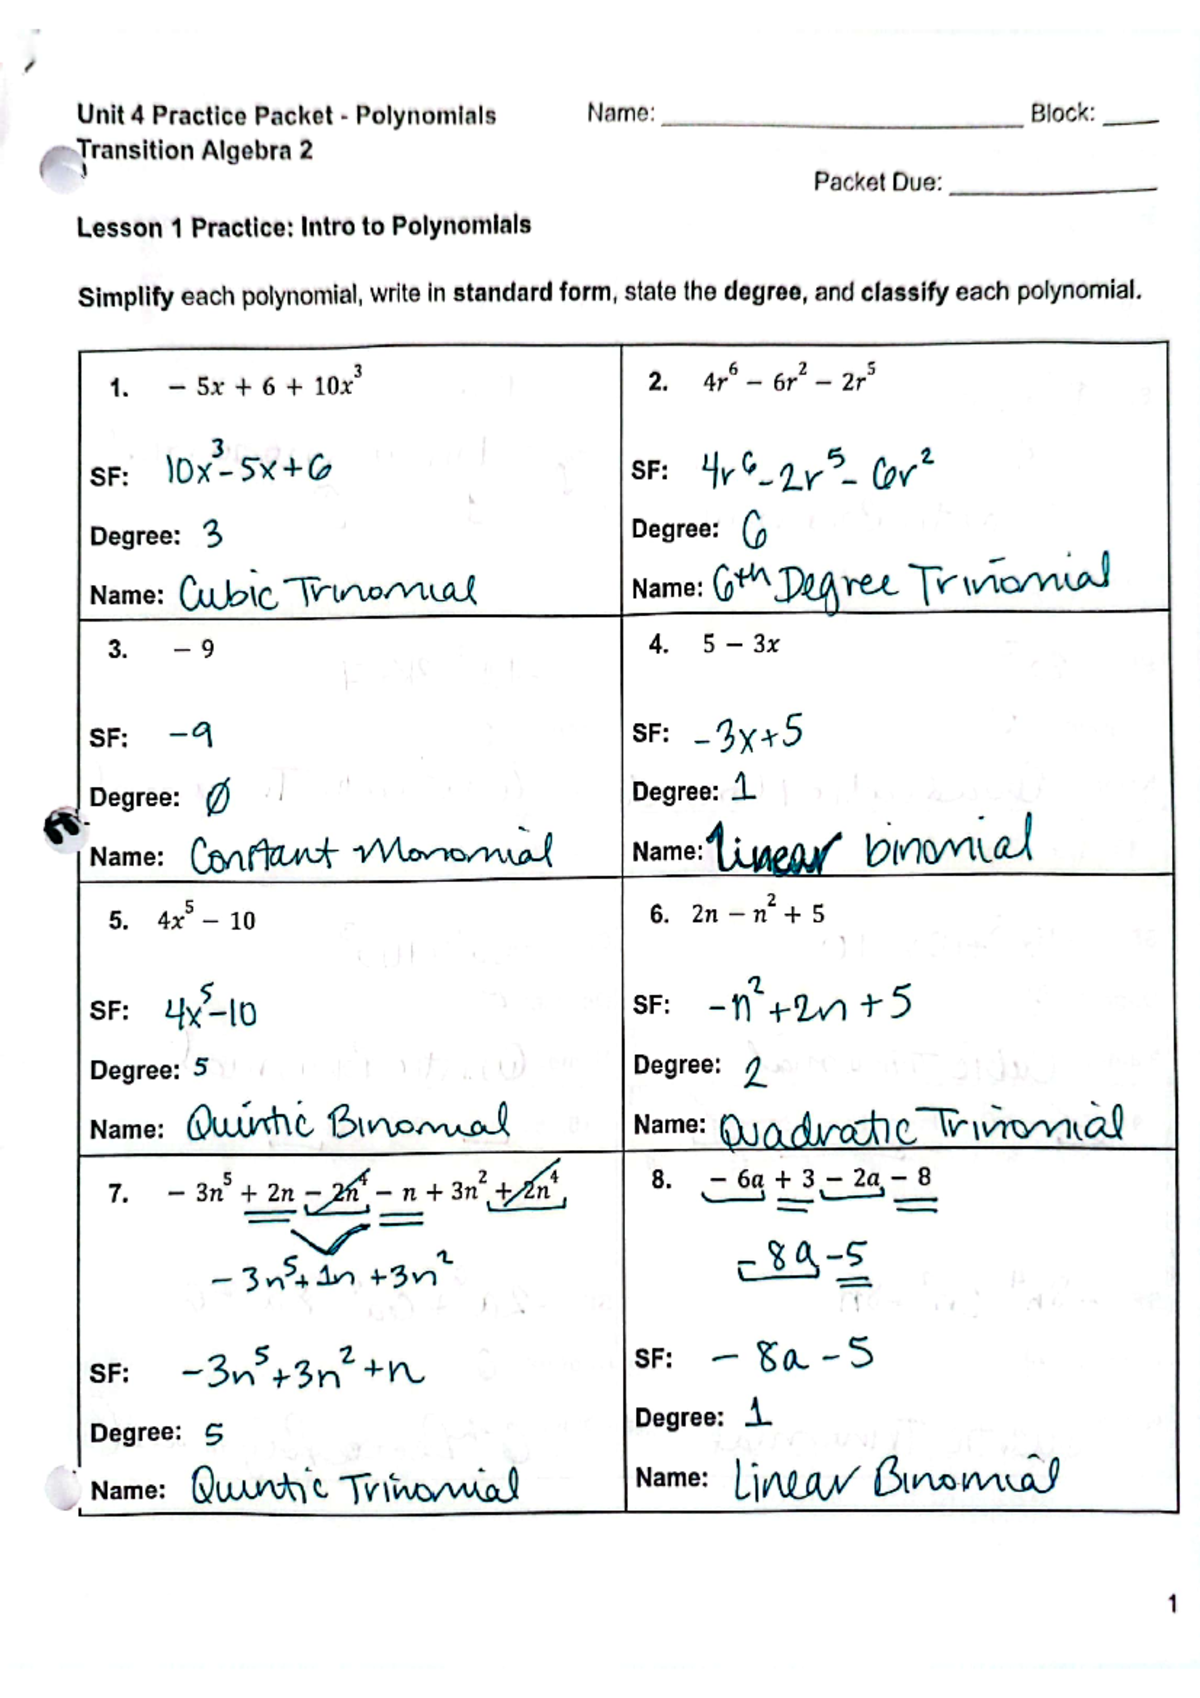 Unit 4 Practice Packet - Polynomials Name: Block:
Transition Algebra 2
Packet Due:
Lesson 1 Practice: Intro to Polynomials
Simplify each polynomial, write in standard form, state the degree, and classify each polynomial.
1. − 5x + 6 + 10x³
SF: 10x³-5x+6
Degree: 3
Name: Cubic Trinomial
2. 4r⁶ − 6r² − 2r⁵
SF: 4r⁶-2r⁵-6r²
Degree: 6
Name: 6th Degree Trinomial
3. − 9
SF: -9
Degree: 0
Name: Constant Monomial
4. 5 − 3x
SF: -3x+5
Degree: 1
Name: Linear binomial
5. 4x⁵ − 10
SF: 4x⁵-10
Degree: 5
Name: Quintic Binomial
6. 2n − n² + 5
SF: -n²+2n+5
Degree: 2
Name: Quadratic Trinomial
7. − 3n⁵ + 2n − 2n⁴ − n + 3n² + 2n⁴
-3n⁵+1n+3n²
SF: -3n⁵+3n²+n
Degree: 5
Name: Quintic Trinomial
8. − 6a + 3 − 2a − 8
-8a-5
SF: -8a-5
Degree: 1
Name: Linear Binomial
1